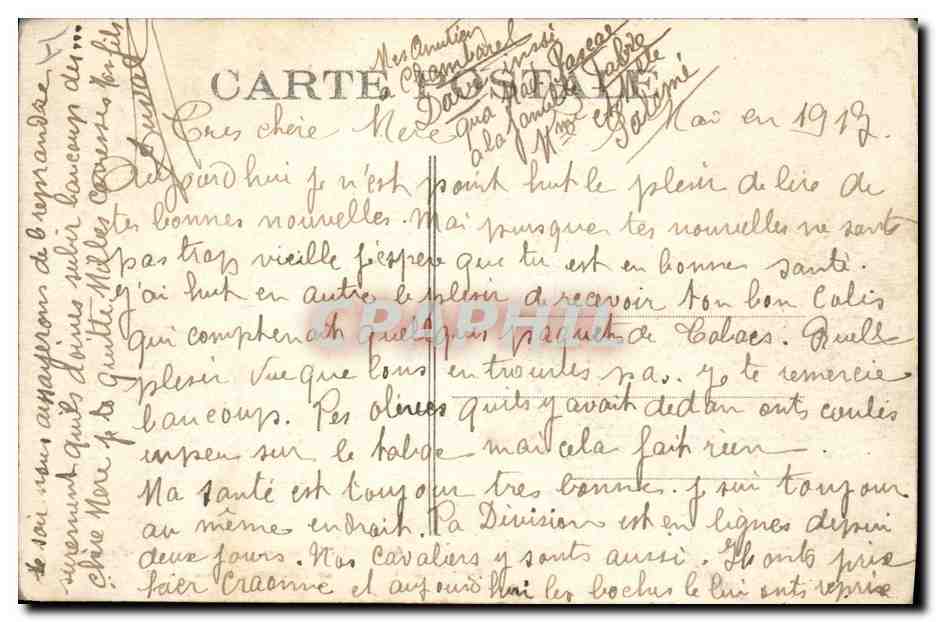 CARTE POSTALE
Mes Amitiés
a Chambarel
Dare ainssi
qua Mad Pascae
à la famille Fabre
Mme
Tres chère Mere Mai en 1917.
Aujourdhui je n'est point hut le plesir de lire de
tes bonnes nouvelles. Mai puisque tes nouvelles ne sont
pas trap vieille j'espere que tu est en bonne santé.
J'ai hut en autre le plesir de recevoir ton bon Colis
qui comptenait quelquis paquets de Tabacs. Quelle
plesir Vue que lons en trouves pa.. je te remercie
baucoup. Les olives quils y avait dedan onts coulés
unpeu sur le tabac mai cela fait rien.
Ma santé est toujour tres bonne. je suis toujour
au même endroit. La Division est en lignes depui
deux jours. Nos cavaliers y sonts aussi. Ils onts pris
hier Craonne et aujourd'hui les boches le lui onts repris
CPAPHIL
ce soir nous aussayerons de le reprandre
surement quils doives subir baucoup des...
chère Mere je te quitte Milles Caresses ton fils